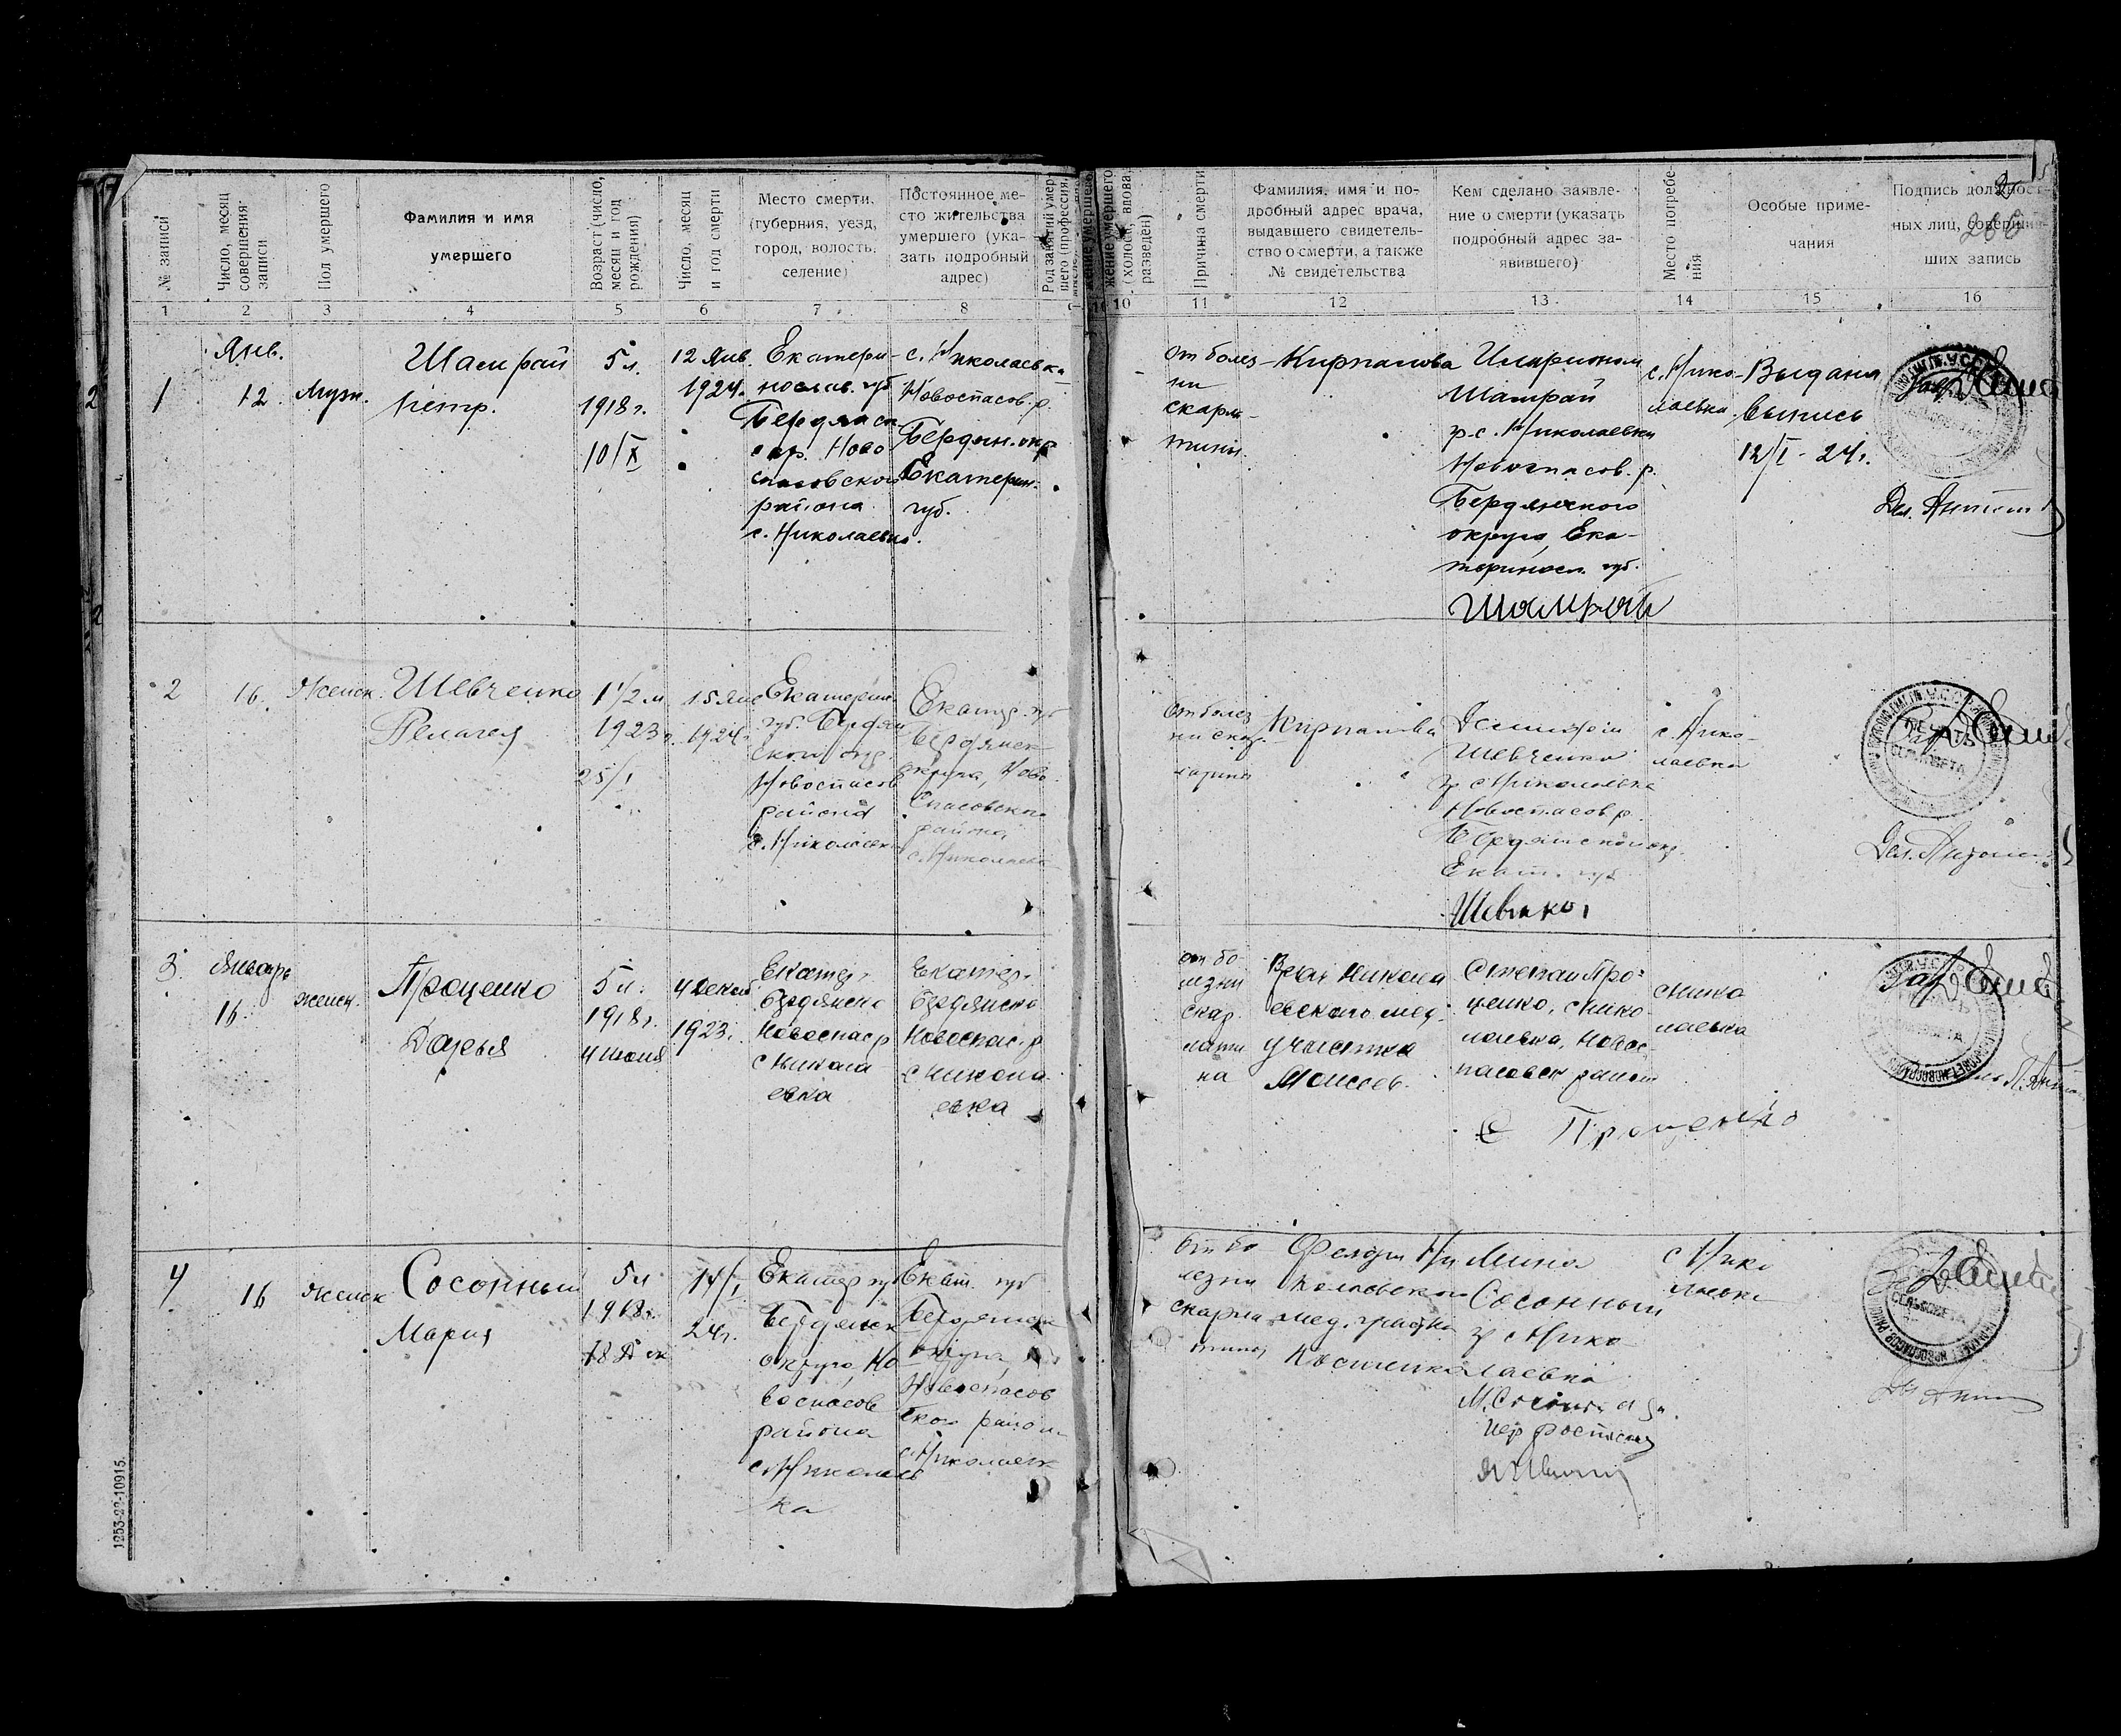 № записи
Число, месяц совершения записи
Пол умершего
Фамилия и имя
умершего
Возраст (число, месяц и год рождения)
Число, месяц и год смерти
Место смерти.
(губерния, уезд,
город, волость,
селение)
Постоянное ме-
сто жительства
умершего (ука-
зать подробный
адрес)
Причина смерти
Фамилия, имя и по-
дробный адрес врача,
выдавшего свидетель-
ство о смерти, а также
№ свидетельства
Кем сделано заявле-
ние о смерти (указать
подробный адрес за-
явившего)
Место погребе-
ния
Особые приме-
чания
Подпись должност-
ных лиц, совершив-
ших запись
1 2 3 4 5 6 7 8 10 11 12 13 14 15 16
1
Янв.
12
Муж.
Шамрай
Петр.
5 л.
1918 г.
10/X
12 Янв
1924 г.
Екатери-
нослав. губ
Бердянск
окр. Ново
спасовского
района
с. Николаевка
с. Николаевка
Новоспасов. р.
Бердян. окр
Екатерин.
губ.
от болез-
ни
скарла-
тины
Илларионом
Шамрай
гр. с. Николаевки
Новоспасов. р.
Бердянского
округа, Ека-
теринос. губ.
Шамрай
с. Нико-
лаевка
Выдана
выпись
12/I - 24 г.
2
16.
Женск.
Шевченко
Пелагея
1 1/2 м
1923 г.
25/I
15 Янв
1924 г.
Екатерин.
губ. Бердян
ского окр.
Новоспасов
района
с. Николаевк
Екатер. губ
Бердянск
округа, Ново
Спасовского
района,
с. Николаевка
От болез
ни скар
латины
Шевченко
гр с Николаевка
Новоспасов р.
Бердянского окр.
Екат. губ
с. Нико-
лаевка
3.
Январь
16
женск.
Проценко
Дарья
5 л.
1918 г.
4 июня
4 Декаб
1923 г.
Екатер.
Бердянско
Новоспас р
с Никола
евка
Екатер.
Бердянско
Новоспас. р
с Никола
евка
от бо-
лезни
скар
лати
на
Врач Никола
евского мед.
участка
Моисеев.
Степан Про-
ценко, с Нико
лаевка, Новос-
пасовск район
С Проценко
с Нико
лаевка
4
16
Женск
Сосонный
Мария
5 л
1918 г.
14/I
24 г.
Екатер губ
Бердянск
округа, Но
воспасов
района
с. Николаев
ка
Екат. губ
Бердянск
округа,
Новоспасов
ского района
с. Николаевк
От бо
лезни
скарла
тины
Фельдш Ни
колаевского
мед. участка
Мина
Сосонный
гр с Нико-
лаевка
с Нико
лаевка
1253-22-10915.